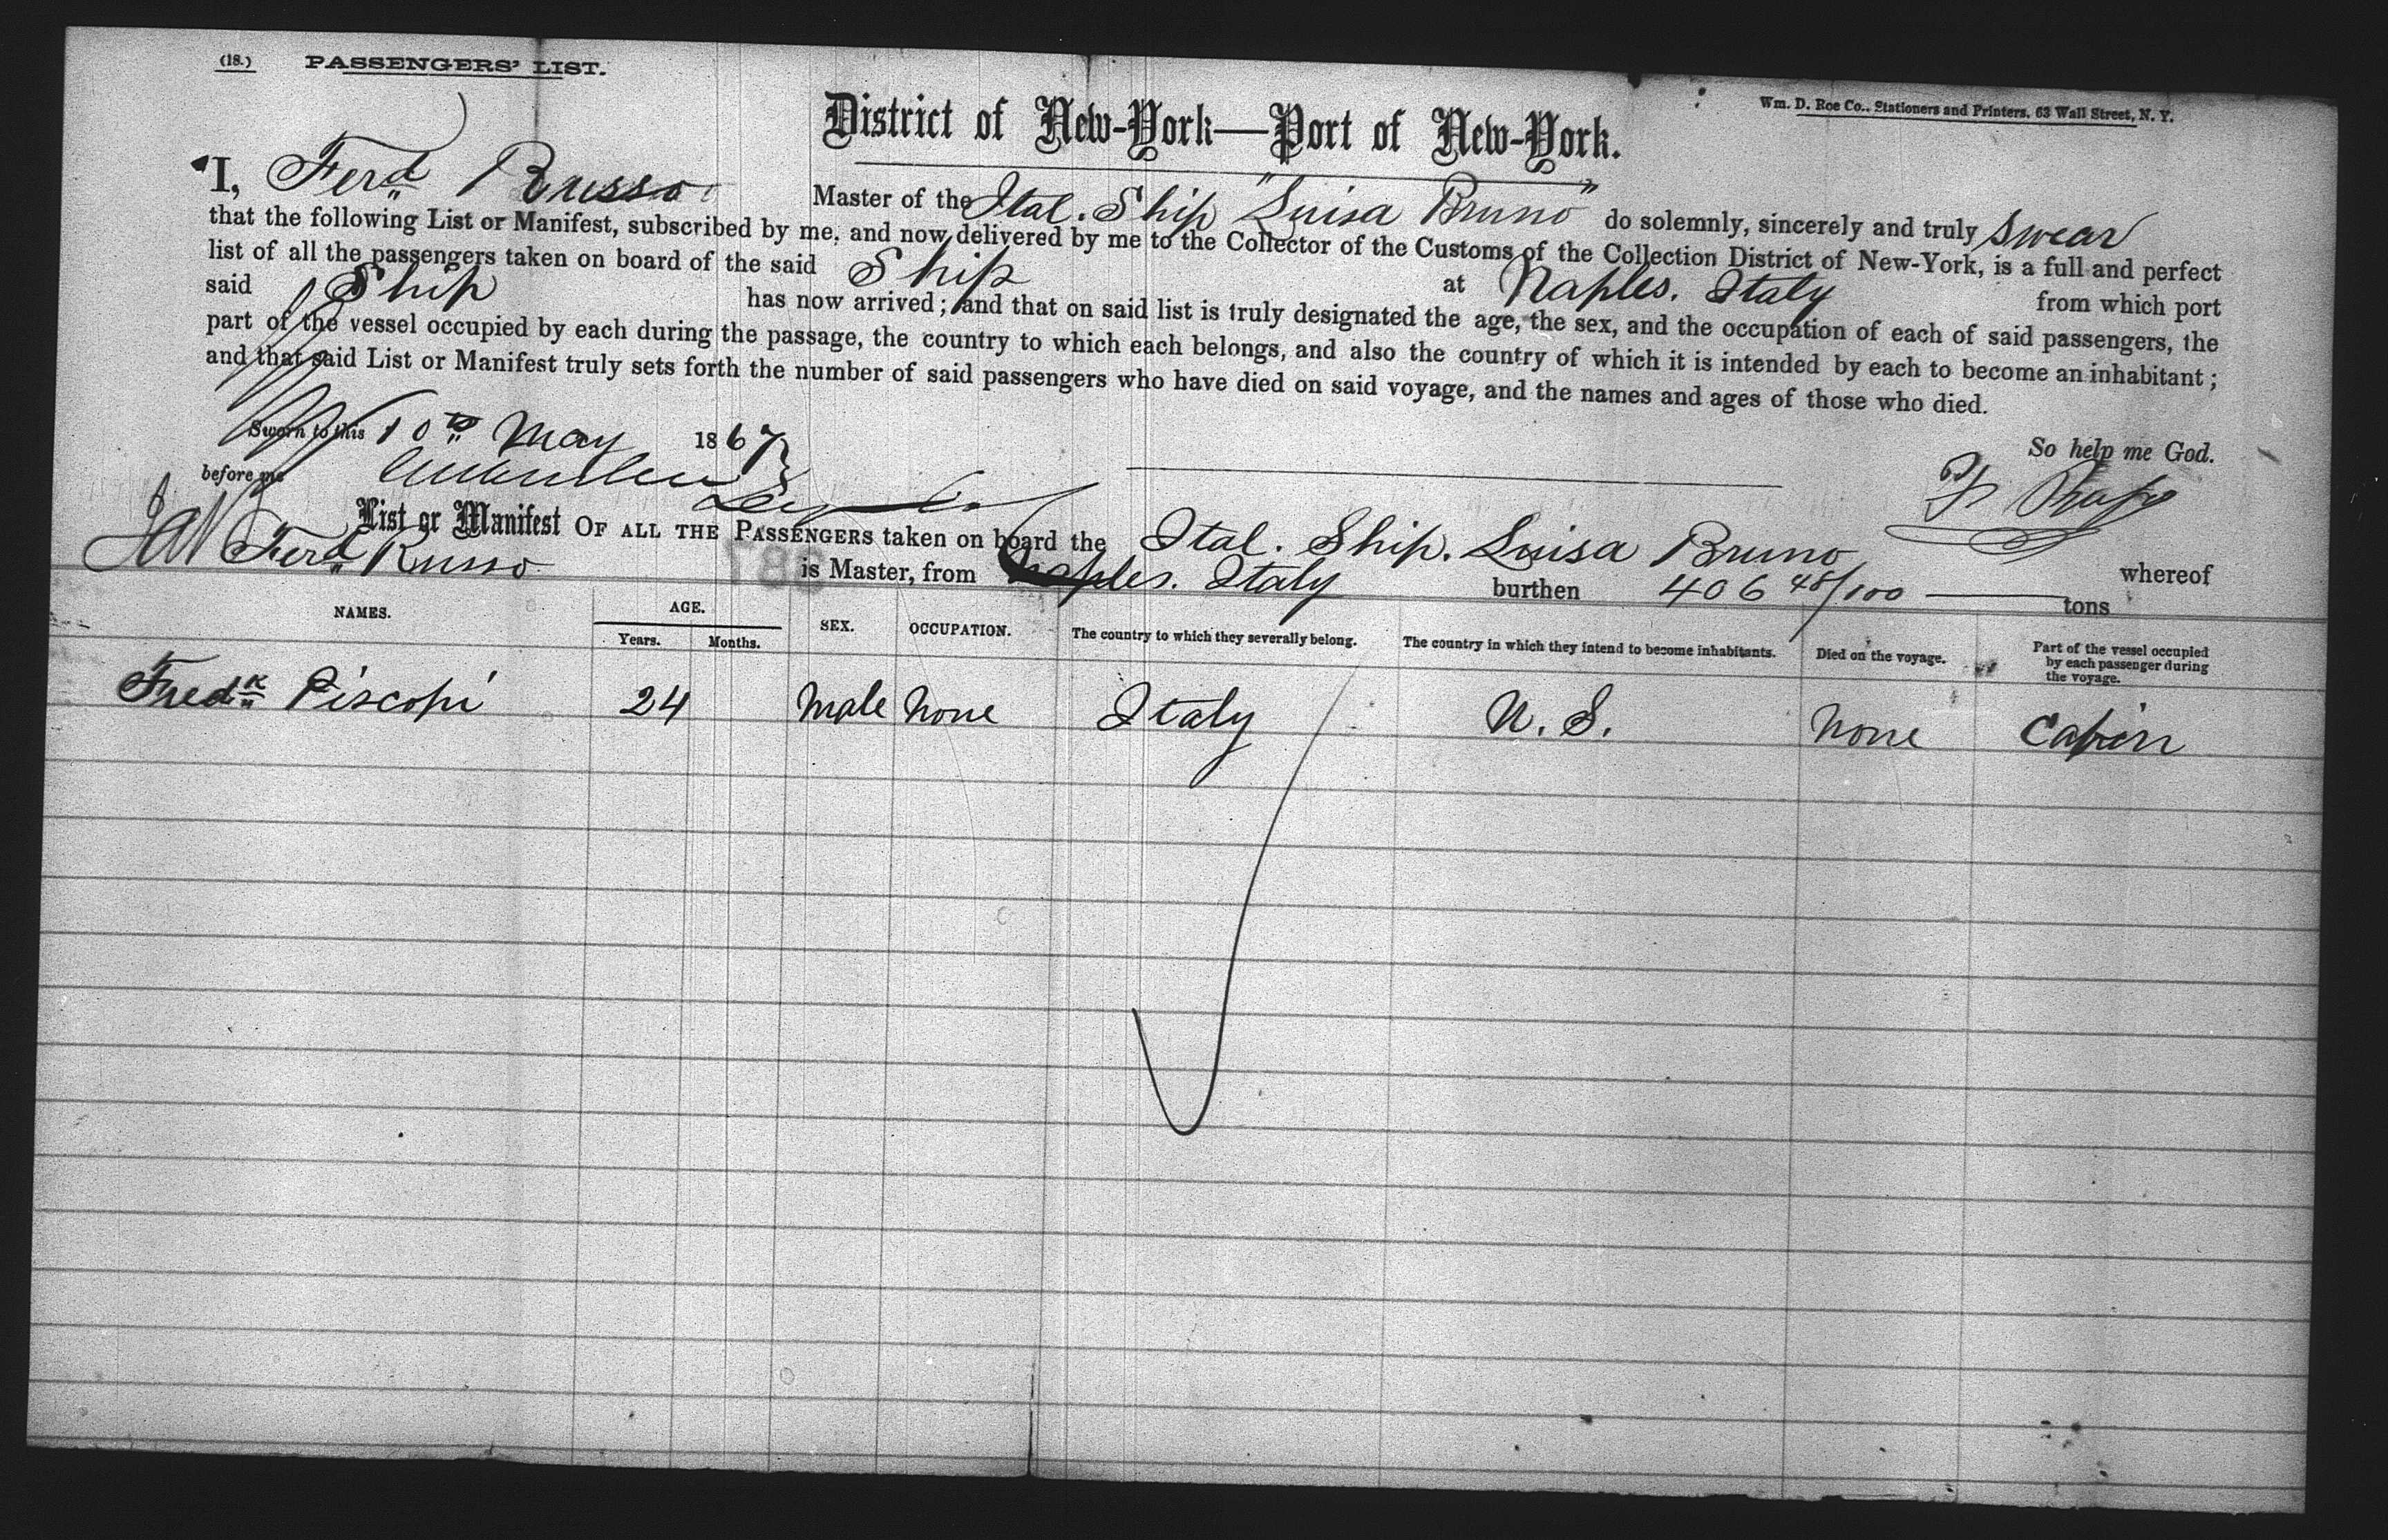 (18.) PASSENGERS' LIST.
Wm. D. Roe Co., Stationers and Printers, 63 Wall Street, N. Y.
District of New-York—Port of New-York.
I, Ferd Russo Master of the Ital. Ship "Luisa Bruno" do solemnly, sincerely and truly swear
that the following List or Manifest, subscribed by me, and now delivered by me to the Collector of the Customs of the Collection District of New-York, is a full and perfect
list of all the passengers taken on board of the said Ship at Naples. Italy from which port
said Ship has now arrived; and that on said list is truly designated the age, the sex, and the occupation of each of said passengers, the
part of the vessel occupied by each during the passage, the country to which each belongs, and also the country of which it is intended by each to become an inhabitant;
and that said List or Manifest truly sets forth the number of said passengers who have died on said voyage, and the names and ages of those who died.
So help me God.
Sworn to this 10th May 1867
before me
List or Manifest OF ALL THE PASSENGERS taken on board the Ital. Ship. Luisa Bruno whereof
Ferd Russo is Master, from Naples. Italy burthen 406 48/100 tons
NAMES. AGE. SEX. OCCUPATION. The country to which they severally belong. The country in which they intend to become inhabitants. Died on the voyage. Part of the vessel occupied by each passenger during the voyage.
Years. Months.
Fredk Piscopi 24 Male None Italy U. S. None Cabin